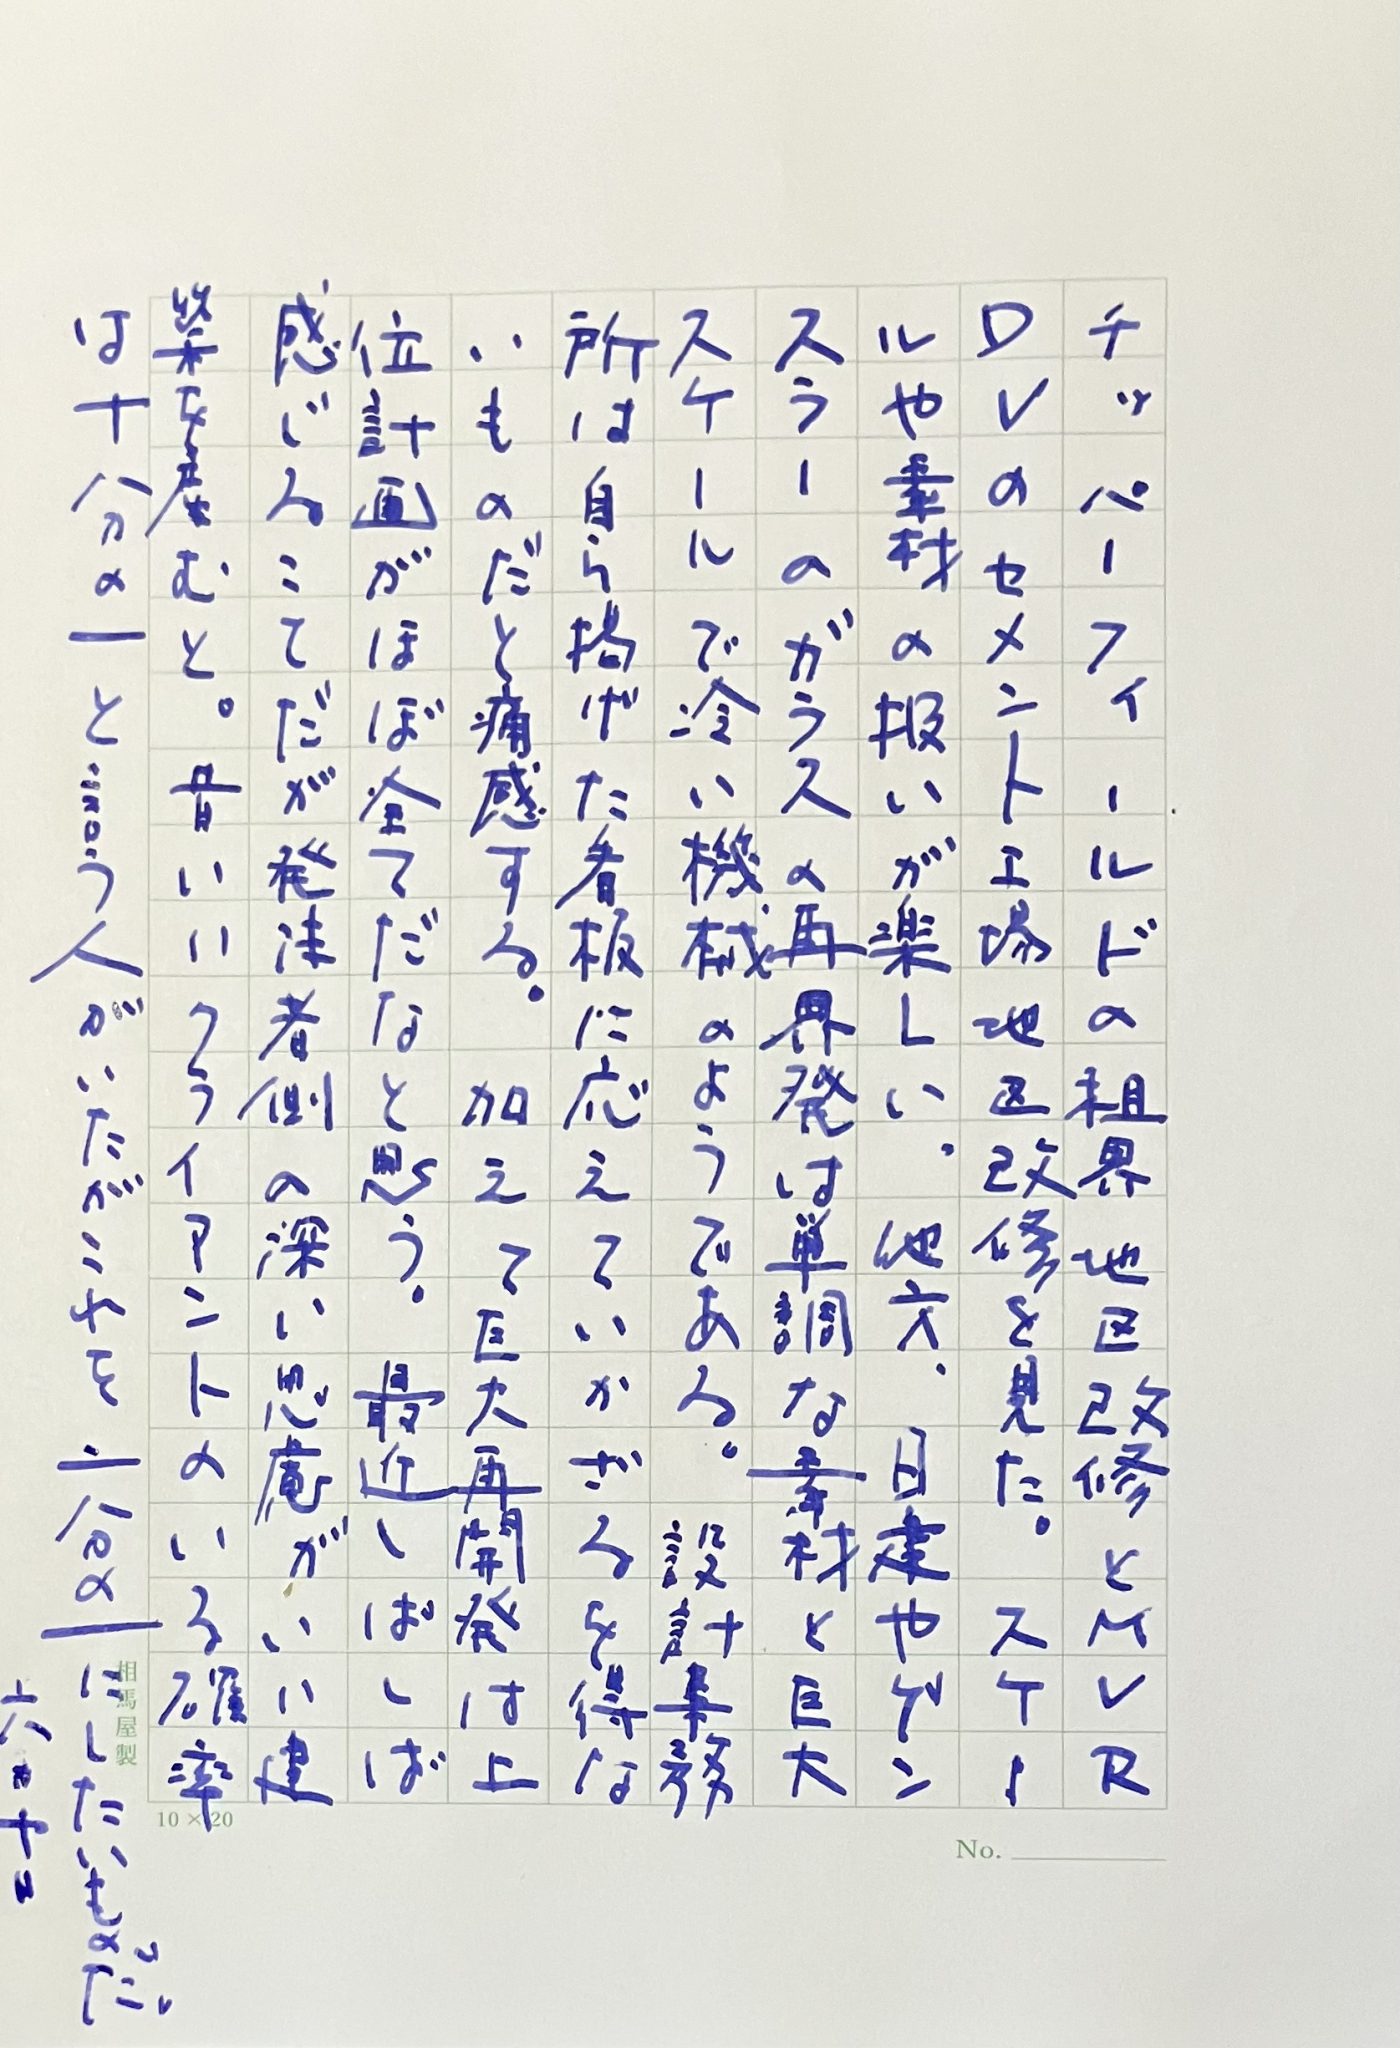 チッパーフィールドの租界地区改修とMVR
DVのセメント工場地区改修を見た。スケー
ルや素材の扱いが楽しい。他方、日建やゲン
スラーのガラスの再界発は単調な素材と巨大
スケールで冷い機械のようである。設計事務
所は自ら掲げた看板に応えていかざるを得な
いものだと痛感する。加えて巨大再開発は上
位計画がほぼ全てだなと思う。最近しばしば
感じることだが発注者側の深い思慮がいい建
築を産むと。昔いいクライアントのいる確率
は十分の一と言う人がいたがこれを二分の一にしたいものだ。
六月十日
相馬屋製
10×20
No.